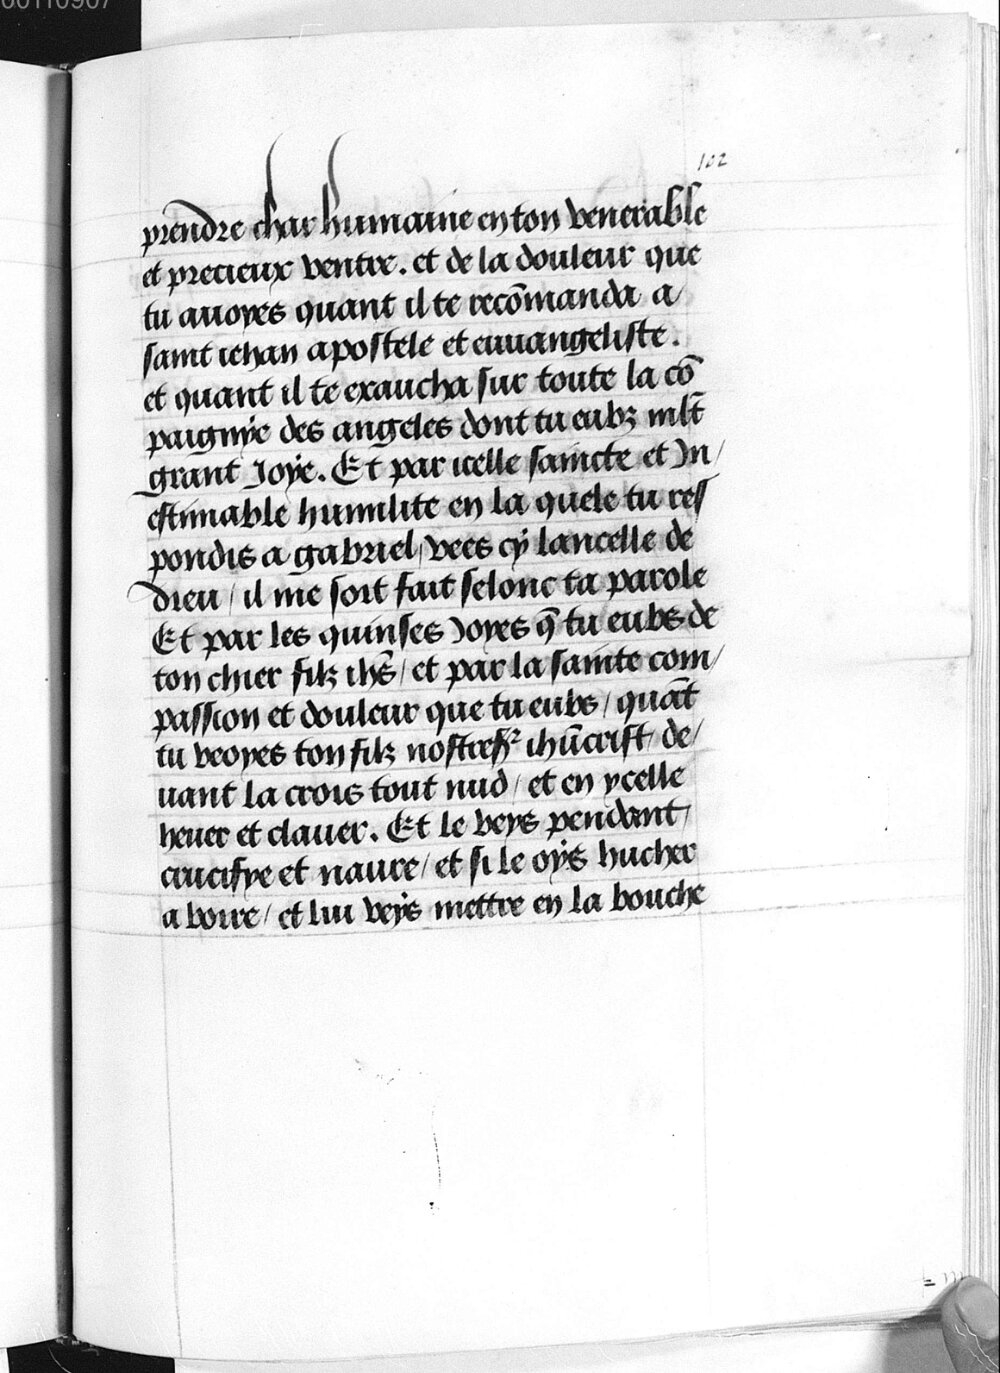 60110907
102
prendre char humaine en ton venerable
et precieux ventre. et de la douleur que
tu auoyes quant il te recōmanda a
saint iehan apostele et euuangeliste.
et quant il te exaucha sur toute la cō
paignye des angeles dont tu eubz mlt̄
grant Joye. Et par icelle saincte et In/
estimable humilite en la quele tu res
pondis a gabriel/ vees cy lancelle de
dieu / il me soit fait selonc ta parole
Et par les quinses Joyes q̄ tu eubs de
ton chier filz ihs̄ / et par la sainte com/
passion et douleur que tu eubs / quāt
tu veoyes ton filz nostre sr ihūcrist/ de/
uant la crois tout nud / et en ycelle
leuer et clauer. Et le veys pendant/
crucifye et naure / et si le oys hucher
a boire / et lui veys mettre en la bouche